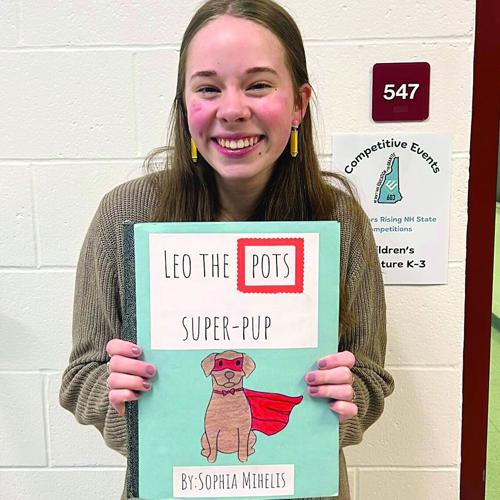 547
Competitive Events
603
Rising NH State
Competitions
K-3
LEO THE POTS
SUPER-PUP
BY: SOPHIA MIHELIS